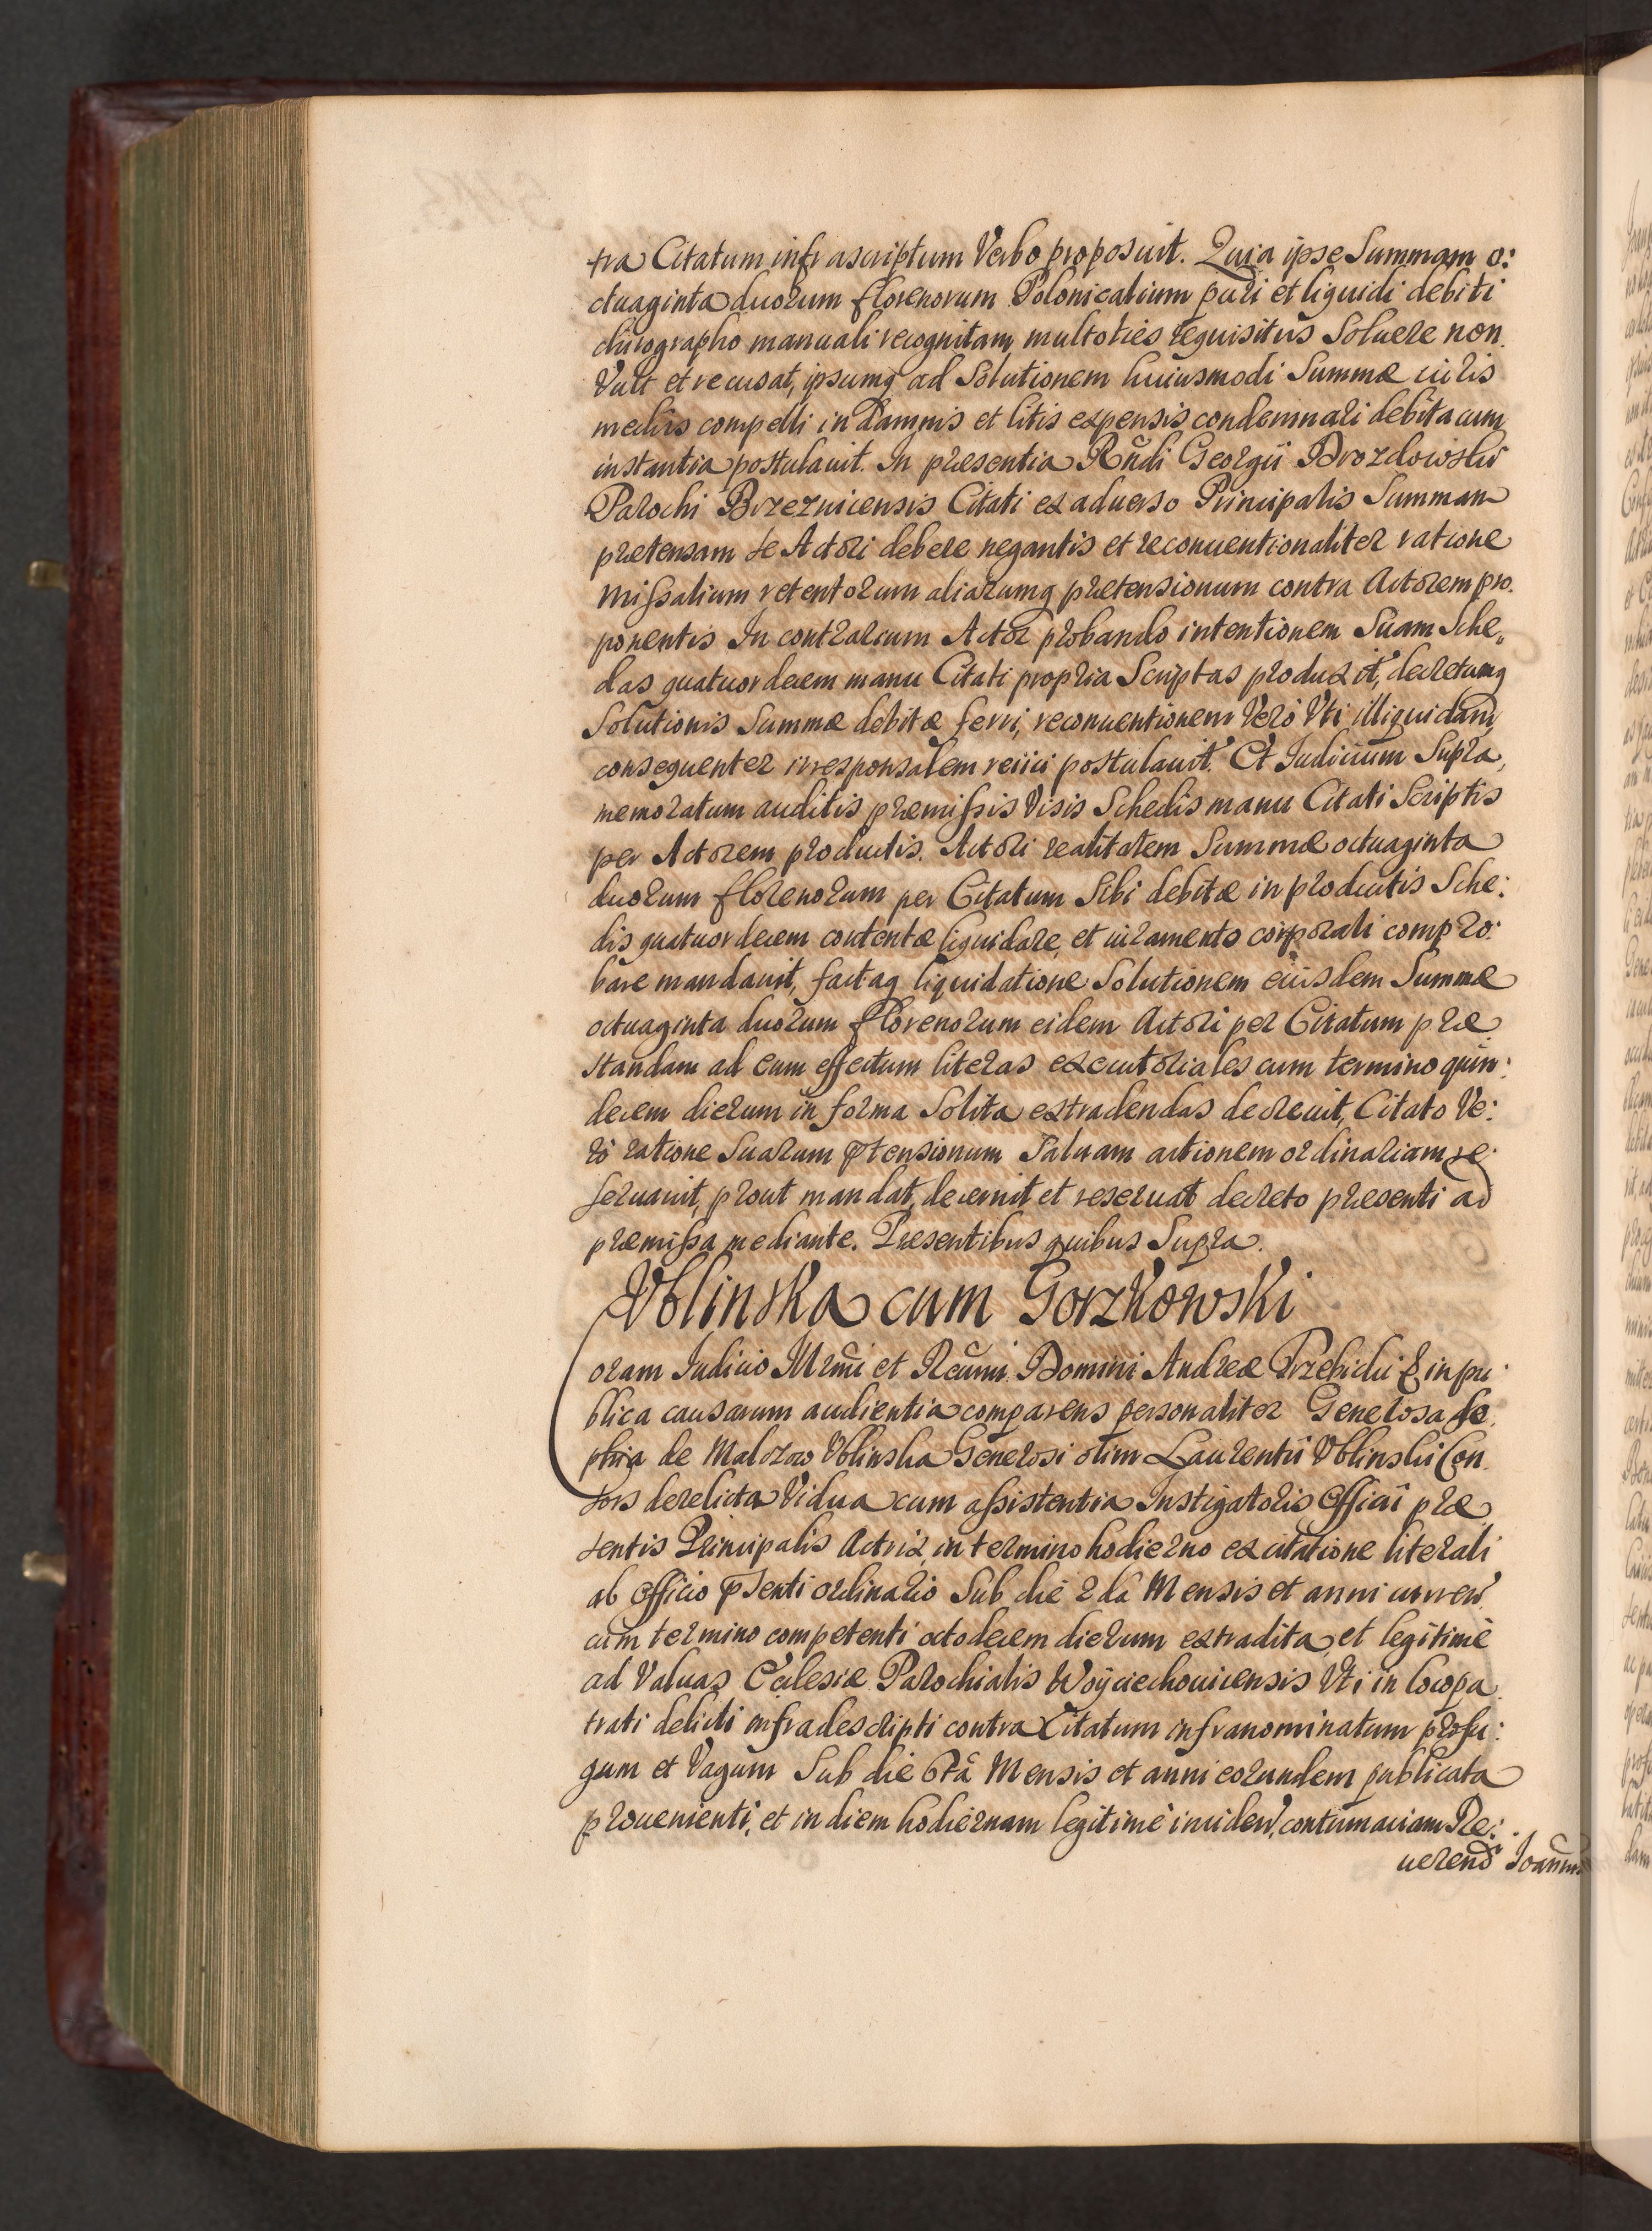 tra Citatum infrascriptum Verbo proposuit. Quia ipse Summam o:
ctuaginta duorum florenorum Polonicalium puri et liquidi debiti
chirographo manuali recognitam multoties requisitus Soluere non
Vult et recusat, ipsumq ad Solutionem huiusmodi Summæ iuris
medijs compelli in damnis et litis expensis condemnari debita cum
instantia postulauit. In præsentia Rndi Georgii Drozdowski
Parochi Brzeznicensis Citati ex aduerso Principalis Summam
prætensam se Actori debere negantis et reconuentionaliter ratione
Missalium retentorum aliarumq prætensionum contra Actorem pro
ponentis In contrarium Actor probando intentionem Suam Sche„
das quatuordecem manu Citati propria Scriptas produxit, decretumq
Solutionis Summæ debitæ ferri, reconuentionem Verò Vti illiquidam
consequenter irresponsalem reiici postulauit. Et Iudicium Supra,
memoratum auditis præmissis Visis Schedis manu Citati Scriptis
per Actorem productis. Actori realitatem Summæ octuaginta
duorum florenorum per Citatum Sibi debitæ in productis Sche:
dis quatuordecem contentæ liquidare, et iuramento corporali compro:
bare mandauit, factaq liquidatione Solutionem eiusdem Summæ
octuaginta duorum florenorum eidem Actori per Citatum præ
standam ad eum effectum literas executoriales cum termino quin:
decem dierum in forma Solita extradendas decreuit, Citato Ve:
rò ratione Suarum ptensionum Saluam actionem ordinariam re
seruauit, prout mandat, decernit et reseruat decreto præsenti ad
præmissa mediante. Præsentibus quibus Supra.
Vblinska cum Gorzkowski
Coram Iudicio Illrmi et Rcumi Domini Andreæ Trzebicki & in pu
blica causarum audientia comparens personaliter Generosa So
phia de Malozow Vblinska Generosi olim Laurentii Vblinski Con
sors derelicta Vidua cum assistentia Instigatoris Officii præ
sentis Principalis Actrix in termino hodierno ex citatione literali
ab Officio psenti ordinario Sub die 2da Mensis et anni curren
cum termino competenti octodecem dierum extradita et legitimè
ad Valuas Ecclesiæ Parochialis Woyciechouicensis Vti in loco pa
trati delicti infradescripti contra Citatum infranominatum profu:
gum et Vagum Sub die 6tâ Mensis et anni eorundem publicata
prouenienti, et in diem hodiernam legitimè inciden, contumaciam Re:
uerend Ioannis